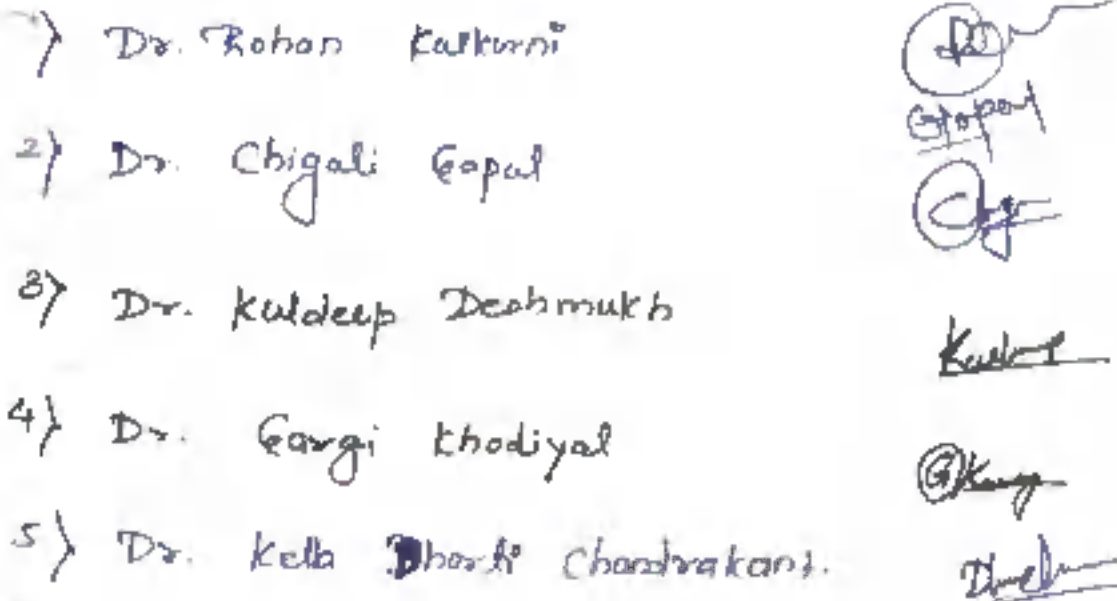 1) Dr. Rohan Kalkurni
2) Dr. Chigali Gopal
Gopal
3) Dr. Kuldeep Deshmukh
4) Dr. Gargi Khodiyal
5) Dr. Kelb Bharti Chandrakant.